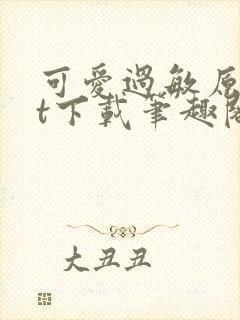 可愛過敏原
t下載筆趣閣
大丑丑